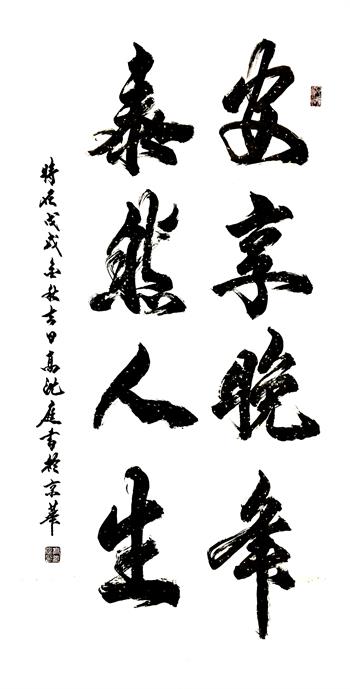 安享晚年
泰然人生
時在戊戌金秋吉日高沈庭書於京華